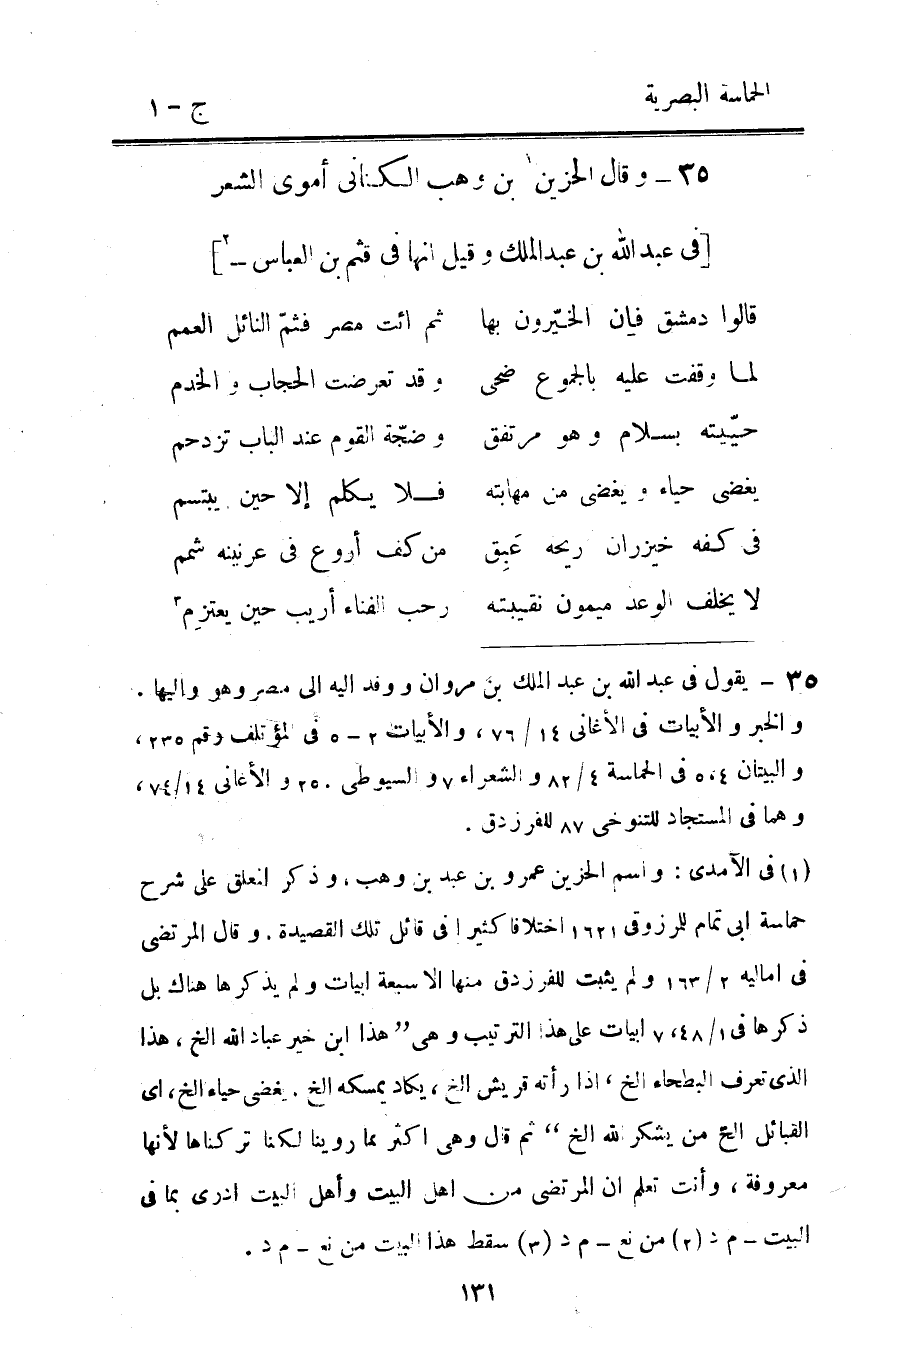 الحماسة البصرية ج - ١
٣٥ - و قال الحزين١ بن وهب الكنانى أموى الشعر
[فى عبد الله بن عبدالملك و قيل انها فى قثم بن العباس -٢]
قالوا دمشق فإن الخيّرون بها ثم ائت مصر فثمّ النائل العمم
لما وقفت عليه بالجموع ضحى و قد تعرضت الحجاب و الخدم
حيّيته بسلام و هو مرتفق و ضجّة القوم عند الباب تزدحم
يغضى حياء و يغضى من مهابته فلا يكلم إلا حين يبتسم
فى كفه خيزران ريحه عَبِق من كف أروع فى عرنينه شمم
لا يخلف الوعد ميمون نقيبته رحب الفناء أريب حين يعتزم٣
٣٥ - يقول فى عبد الله بن عبد الملك بن مروان و وفد اليه الى مصر وهو واليها .
و الخبر و الأبيات فى الأغانى ١٤ / ٧٦، و الأبيات ٢ - ٥ فى المؤتلف رقم ٢٣٥،
و البيتان ٤، ٥ فى الحماسة ٤ / ٨٢ و الشعراء ٧ و السيوطى ٢٥٠ و الأغانى ١٤/ ٧٤،
و هما فى المستجاد للتنوخى ٨٧ للفرزدق .
(١) فى الآمدى : و اسم الحزين عمرو بن عبد بن وهب، و ذكر المعلق على شرح
حماسة ابى تمام للمرزوقى ١٦٢١ اختلافا كثيرا فى قائل تلك القصيدة . و قال المرتضى
فى اماليه ٢ / ١٦٣ و لم يثبت للفرزدق منها الا سبعة ابيات و لم يذكرها هناك بل
ذكرها فى ١/ ٤٨، ٧ ابيات على هذا الترتيب و هى ” هذا ابن خير عباد الله الخ ، هذا
الذى تعرف البطحاء الخ ، اذا رأته قريش الخ ، يكاد يمسكه الخ . يغضى حياء الخ، اى
القبائل الخ من يشكر الله الخ “ ثم قال وهى اكثر مما روينا لكنا تركناها لأنها
معروفة ، و أنت تعلم ان المرتضى من اهل البيت وأهل البيت ادرى بما فى
البيت - م د (٢) من نع - م د (٣) سقط هذا البيت من نع - م د .
١٣١